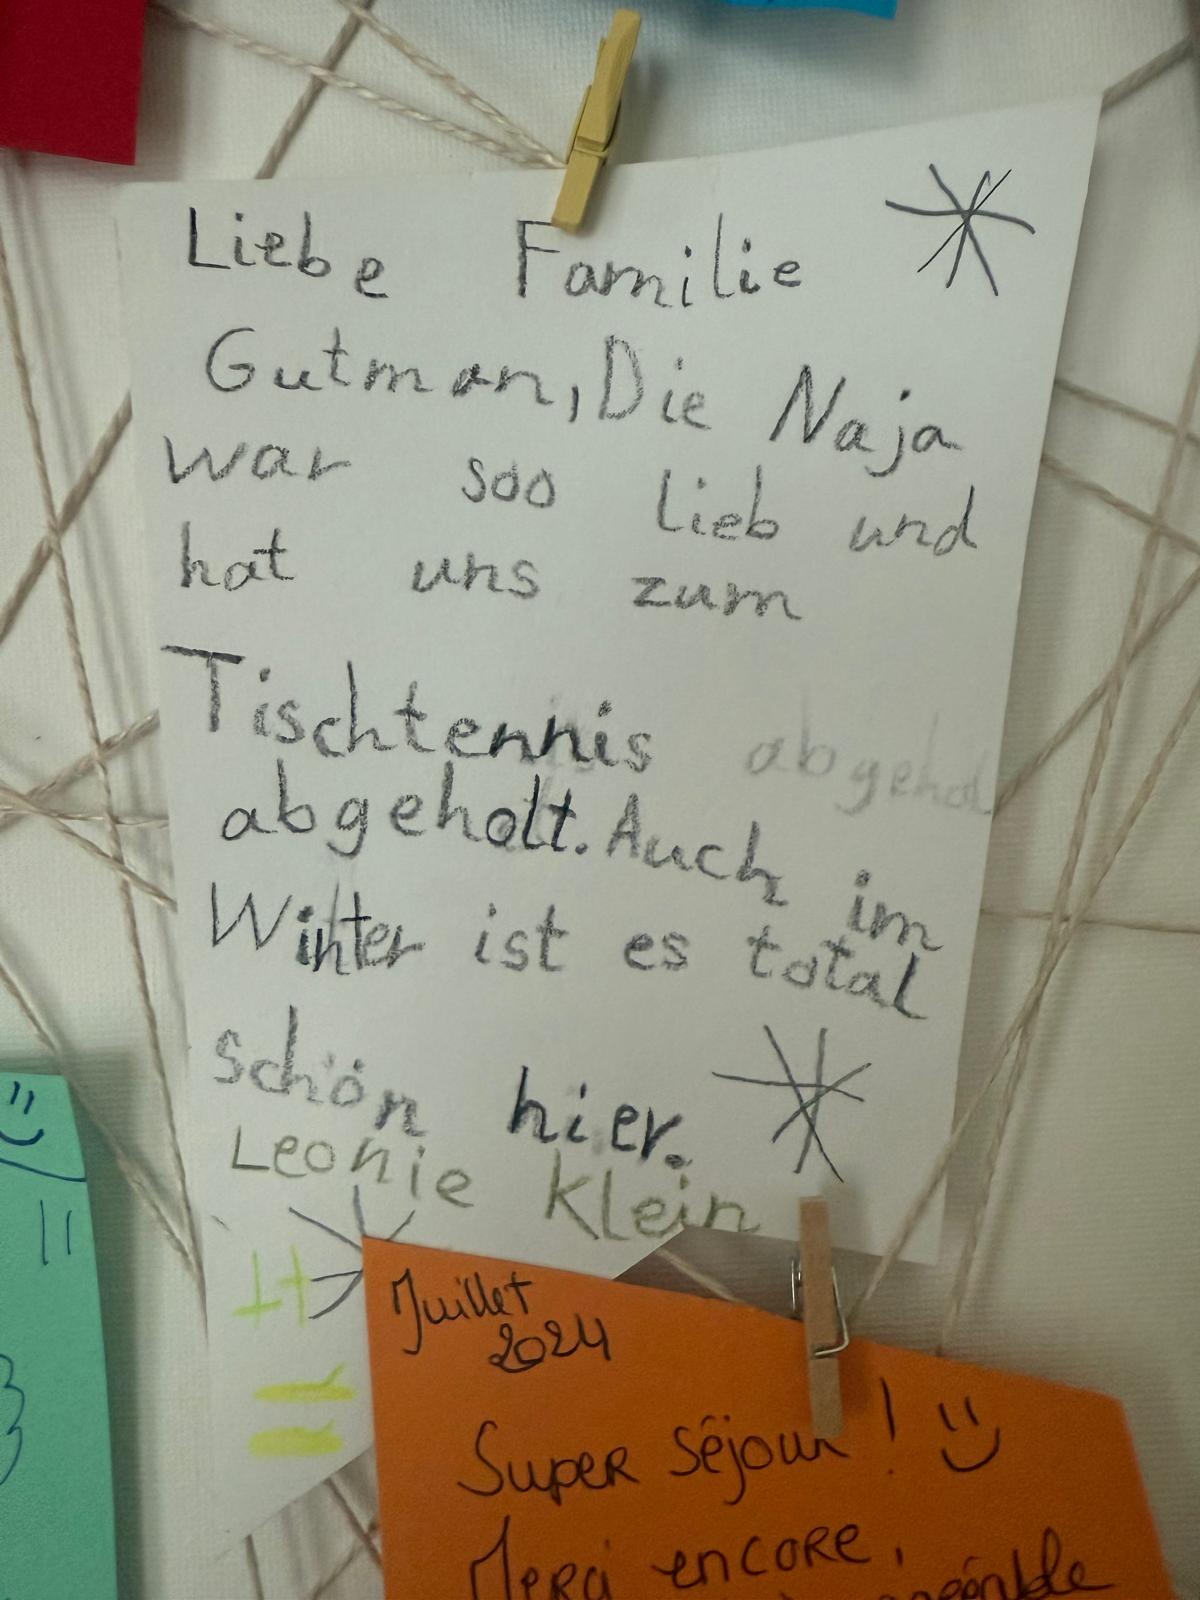 Liebe Familie
Gutman, Die Naja
war soo lieb und
hat uns zum
Tischtennis abgehol
abgeholt. Auch im
Winter ist es total
schön hier.
Leonie Klein
Juillet
2024
Super séjour ! 
Merci encore,
agréable